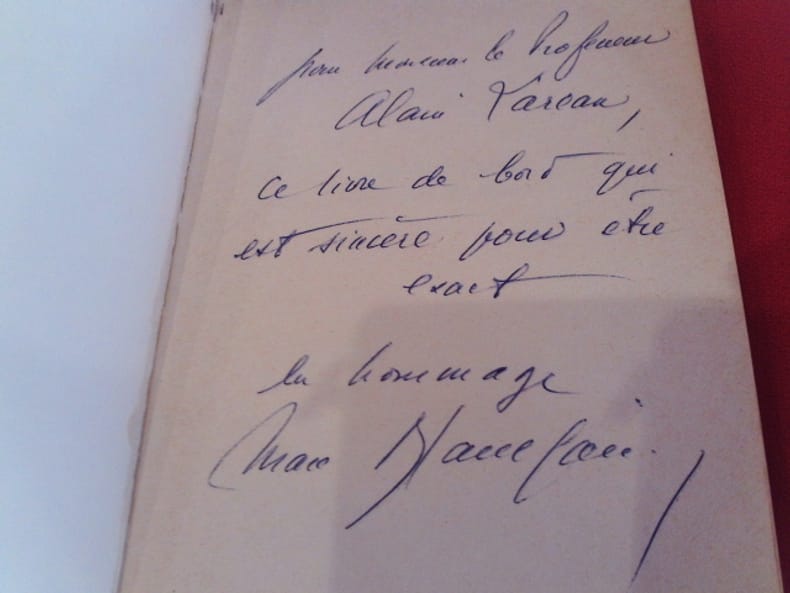 pour monsieur le Professeur
Alain Larcan,
ce livre de bord qui
est sincère pour être
exact
en hommage